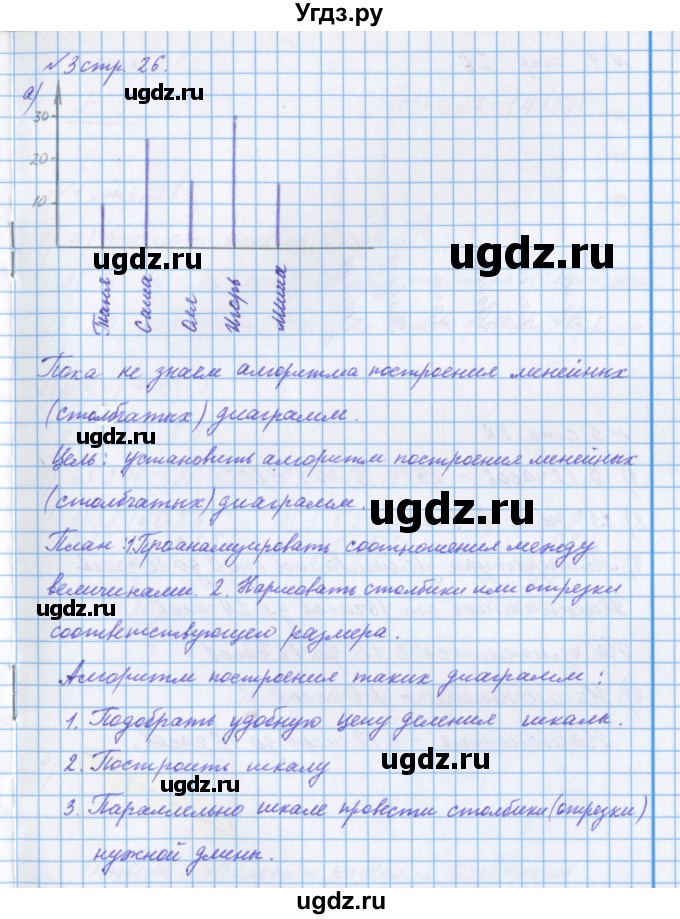 Угдз.ру
№3 стр. 26.
ugdz.ru
а)
30
20
10
ugdz.ru
ugdz.ru
Таня
Саша
Оля
Игорь
Миша
Пока не знаем алгоритма построения линейных
(столбчатых) диаграмм.
ugdz.ru
Цель: установить алгоритм построения линейных
(столбчатых) диаграмм.
ugdz.ru
ugdz.ru
План: 1 Проанализировать соотношения между
величинами. 2. Нарисовать столбики или отрезки
ugdz.ru
соответствующего размера.
ugdz.ru
Алгоритм построения таких диаграмм:
1. Подобрать удобную цену деления шкалы.
2. Построить шкалу
ugdz.ru
ugdz.ru
3. Параллельно шкале провести столбики (отрезки)
нужной длины.
ugdz.ru